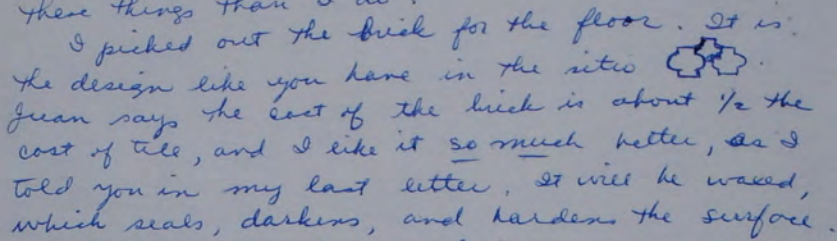 these things than I do.
I picked out the brick for the floor. It is
the design like you have in the sitio
Juan says the cost of the brick is about 1/2 the
cost of tile, and I like it so much better, as I
told you in my last letter. It will be waxed,
which seals, darkens, and hardens the surface.